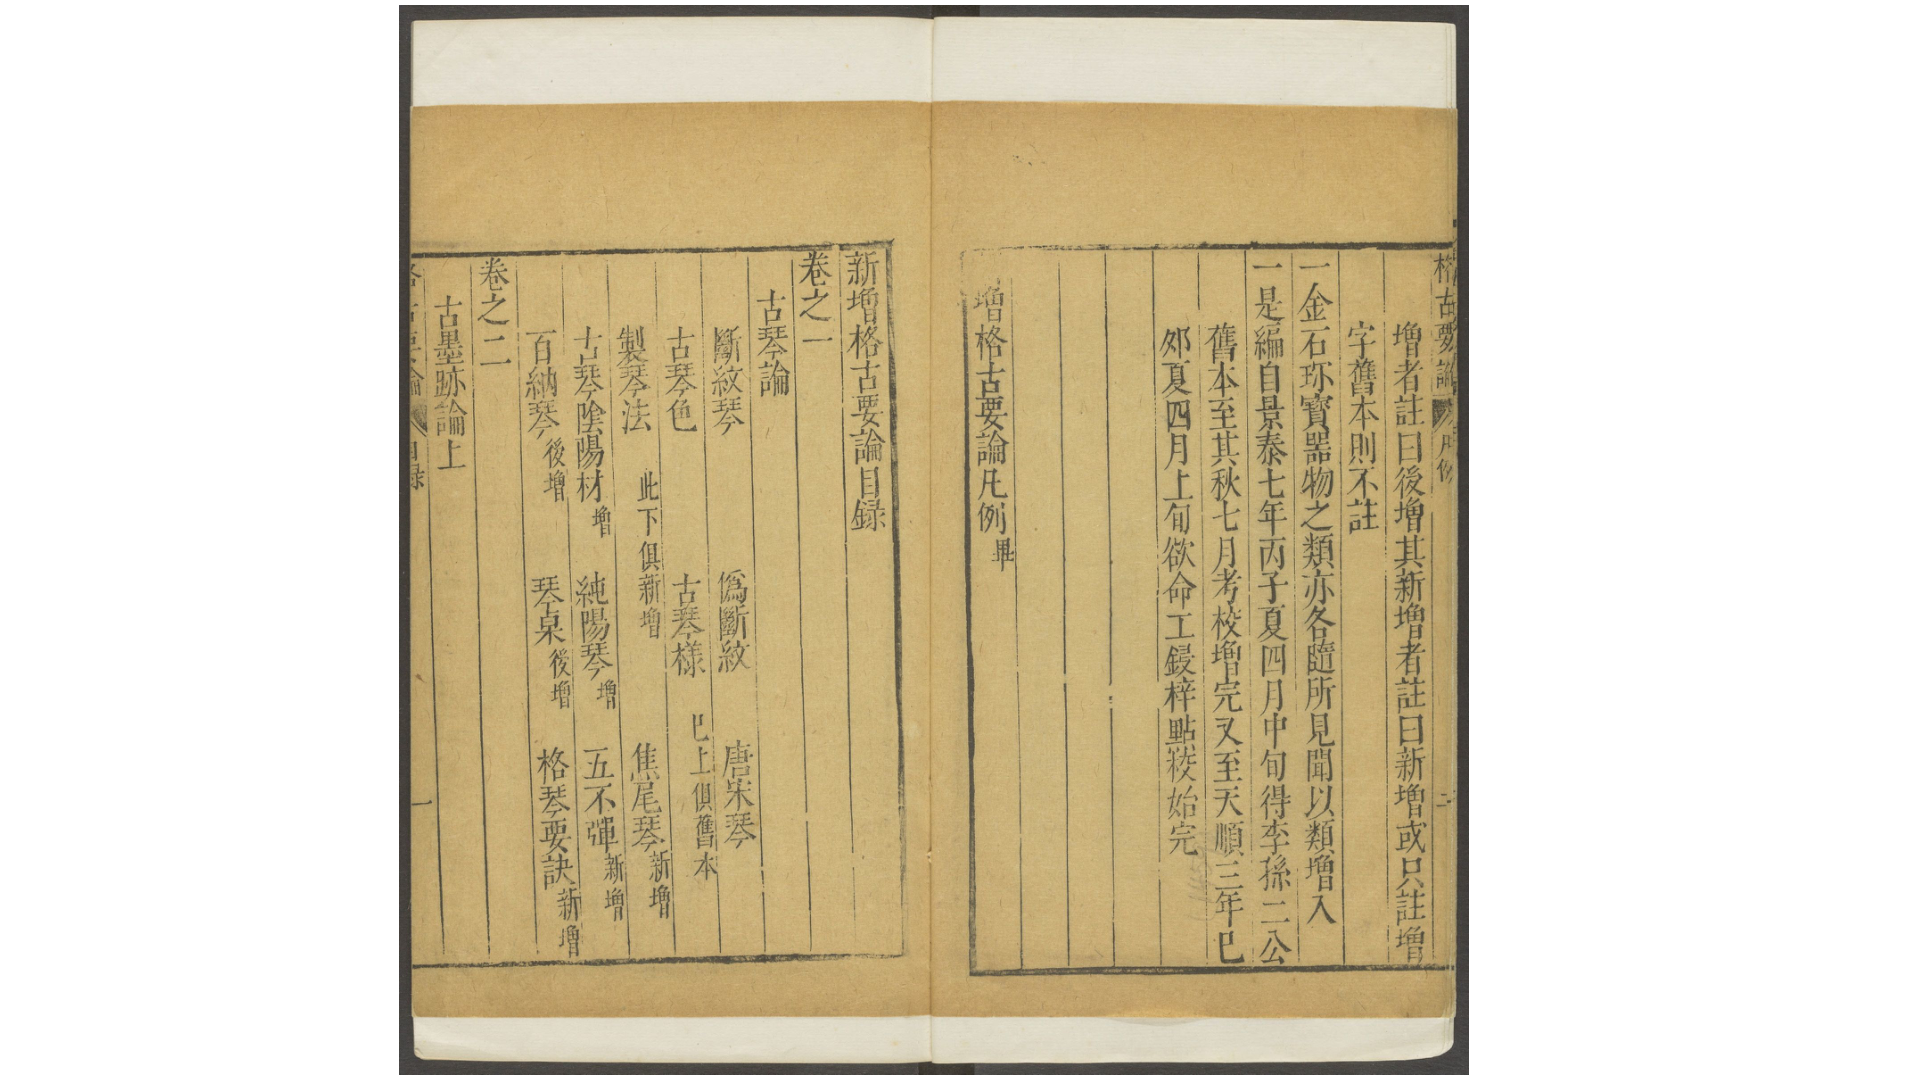 格古要論 凡例 二
增者註曰後增其新增者註曰新增或只註增
字舊本則不註
一金石珎寶器物之類亦各隨所見聞以類增入
一是編自景泰七年丙子夏四月中旬得李孫二公
舊本至其秋七月考校增完又至天順三年巳
夘夏四月上旬欲命工鋟梓點校始完
增格古要論凡例畢
新增格古要論目録
卷之一
古琴論
斷紋琴 僞斷紋 唐宋琴
古琴色 古琴様 巳上俱舊本
製琴法 此下俱新增 焦尾琴新增
古琴陰陽材增 純陽琴增 五不彈新增
百納琴後增 琴桌後增 格琴要訣新增
卷之二
古墨跡論上
格古要論 目録 一